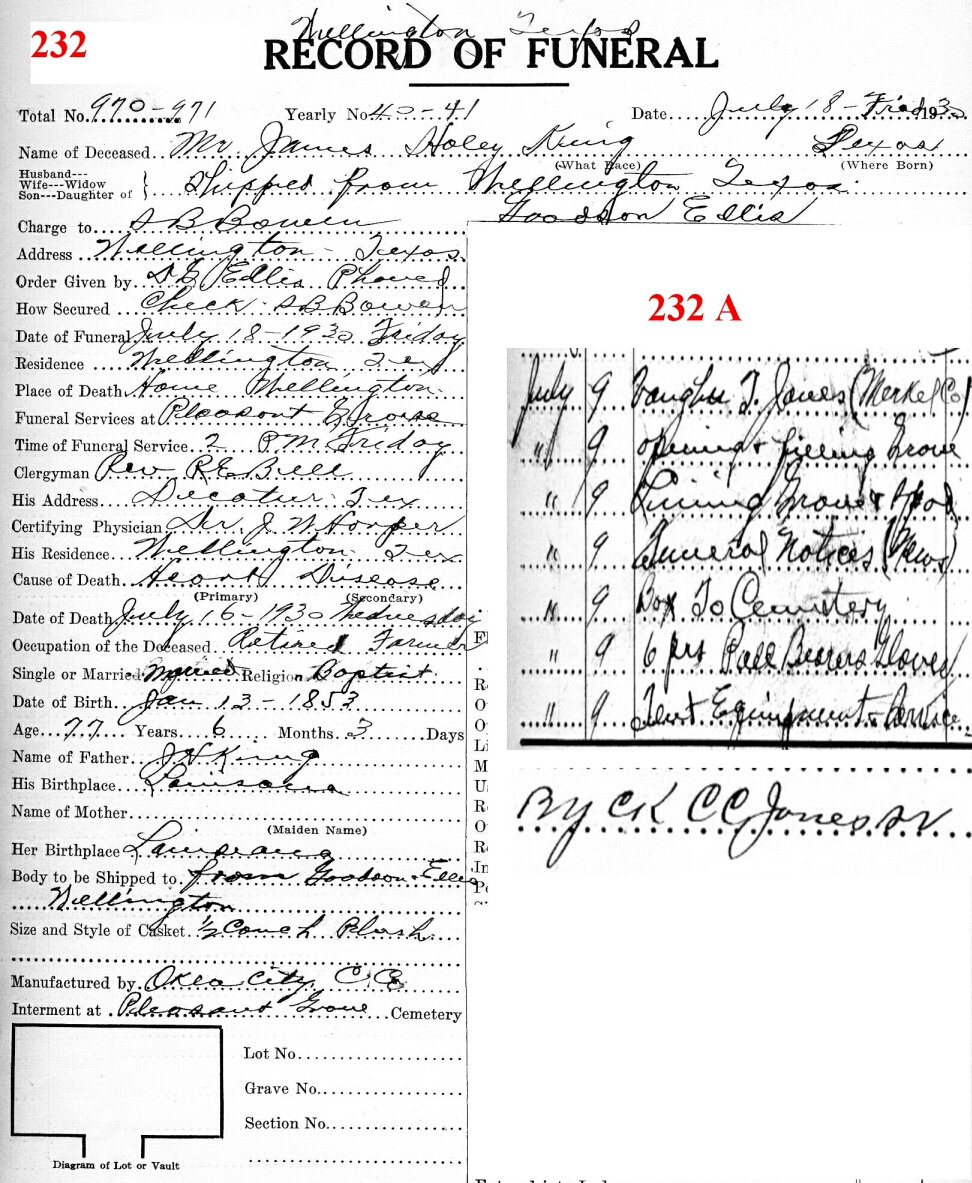 Wellington Texas
232
RECORD OF FUNERAL
Total No. 970-971 Yearly No 40-41 Date July 18-Frid 1930
Name of Deceased Mr. James Holey King Texas
(What Race) (Where Born)
Husband---
Wife---Widow
Son---Daughter of } Shipped from Wellington Texas.
Goodson Ellis
Charge to S B Bowen
Address Wellington - Texas.
Order Given by Ellis Phoned
How Secured Check. S B Bowen
Date of Funeral July 18-1930 Friday
Residence Wellington Tex
Place of Death Home Wellington
Funeral Services at Pleasant Grove
Time of Funeral Service. 2 PM Friday
Clergyman Rev R E Bell
His Address Decatur. Tex
Certifying Physician Dr. J W Hooper
His Residence Wellington. Tex
Cause of Death Heart Disease
(Primary) (Secondary)
Date of Death July 16-1930 Wednesday
Occupation of the Deceased Retired Farmer
Single or Married Married Religion Baptist
Date of Birth Jan 13-1853
Age 77 Years 6 Months 3 Days
Name of Father J H King
His Birthplace Louisiana
Name of Mother
(Maiden Name)
Her Birthplace Louisiana
Body to be Shipped to from Goodson-Ellis
Wellington
Size and Style of Casket ½ Couch Plush
Manufactured by Okla City C. Co
Interment at Pleasant Grove Cemetery
Lot No.
Grave No.
Section No.
Diagram of Lot or Vault
232 A
July 9 Vaughn T. Jones (Merkel Co)
" 9 opening & filling Grave
" 9 Lining Grave &
" 9 Funeral Notices (News)
" 9 Box To Cemetery
" 9 6 prs Pall Bearers Gloves
" 9 Tent Equipment & Service
By CK C C Jones Sr